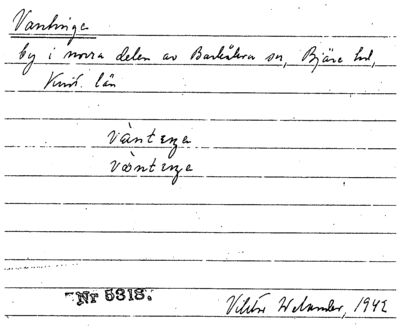 Vantinge
by i norra delen av Barkåkra sn, Bjäre hd,
Krist. län
vànteŋa
vòənteŋa
Nr 5318.
Viktor Welander, 1942